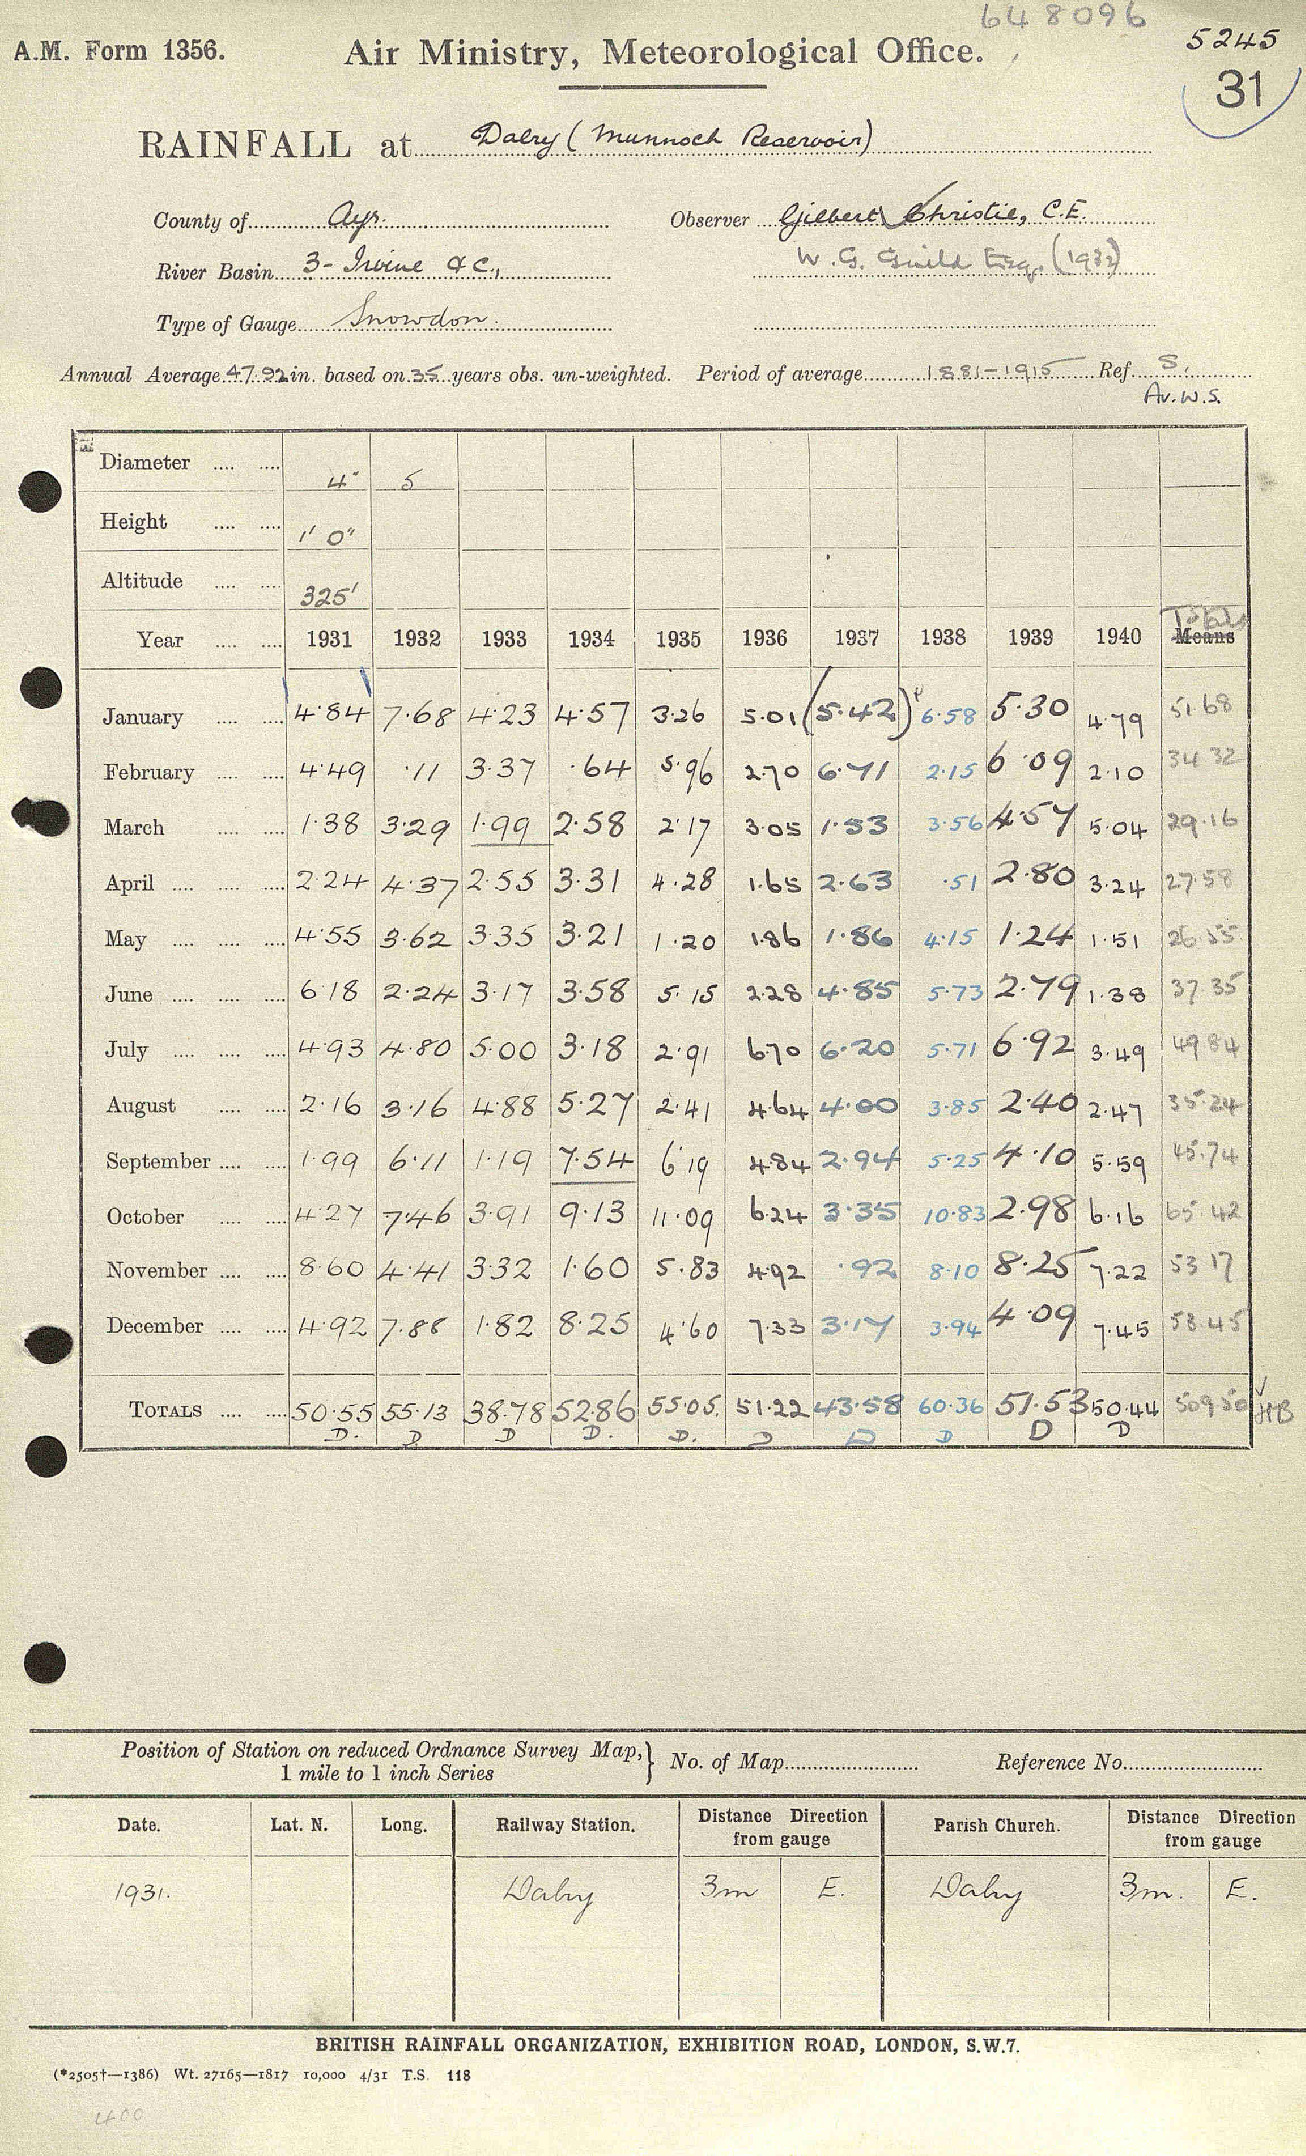 648096
A.M. Form 1356. Air Ministry, Meteorological Office. 5245
31
RAINFALL at Dalry (Munnoch Reservoir)
County of Ayr. Observer Gilbert Christie, C.E.
River Basin 3- Irvine &c., W. G. Guild Esq. (1932)
Type of Gauge Snowdon.
Annual Average 47.92 in. based on 35 years obs. un-weighted. Period of average 1881-1915 Ref. S.
Av. W.S.
Diameter .... .... 4" 5
Height .... .... 1' 0"
Altitude .... .... 325'
Totals
Year .... .... 1931 1932 1933 1934 1935 1936 1937 1938 1939 1940 Means
January .... .... 4.84 7.68 4.23 4.57 3.26 5.01 (5.42) 6.58 5.30 4.79 51.68
February .... .... 4.49 .11 3.37 .64 5.96 2.70 6.71 2.15 6.09 2.10 34.32
March .... .... 1.38 3.29 1.99 2.58 2.17 3.05 1.53 3.56 4.57 5.04 29.16
April .... .... .... 2.24 4.37 2.55 3.31 4.28 1.65 2.63 .51 2.80 3.24 27.58
May .... .... .... 4.55 3.62 3.35 3.21 1.20 1.86 1.86 4.15 1.24 1.51 26.55
June .... .... .... 6.18 2.24 3.17 3.58 5.15 2.28 4.85 5.73 2.79 1.38 37.35
July .... .... .... 4.93 4.80 5.00 3.18 2.91 6.70 6.20 5.71 6.92 3.49 49.84
August .... .... 2.16 3.16 4.88 5.27 2.41 4.64 4.00 3.85 2.40 2.47 35.24
September .... .... 1.99 6.11 1.19 7.54 6.19 4.84 2.94 5.25 4.10 5.59 45.74
October .... .... 4.27 7.46 3.91 9.13 11.09 6.24 3.35 10.83 2.98 6.16 65.42
November .... .... 8.60 4.41 3.32 1.60 5.83 4.92 .92 8.10 8.25 7.22 53.17
December .... .... 4.92 7.88 1.82 8.25 4.60 7.33 3.17 3.94 4.09 7.45 53.45
TOTALS .... .... 50.55 55.13 38.78 52.86 55.05 51.22 43.58 60.36 51.53 50.44 509.50
D. D D D. D. D D D D D
Position of Station on reduced Ordnance Survey Map, } No. of Map Reference No.
1 mile to 1 inch Series
Date. Lat. N. Long. Railway Station. Distance Direction from gauge Parish Church. Distance Direction from gauge
1931. Dalry 3m E. Dalry 3m. E.
BRITISH RAINFALL ORGANIZATION, EXHIBITION ROAD, LONDON, S.W.7.
(*2505†—1386) Wt. 27165—1817 10,000 4/31 T.S. 118
400